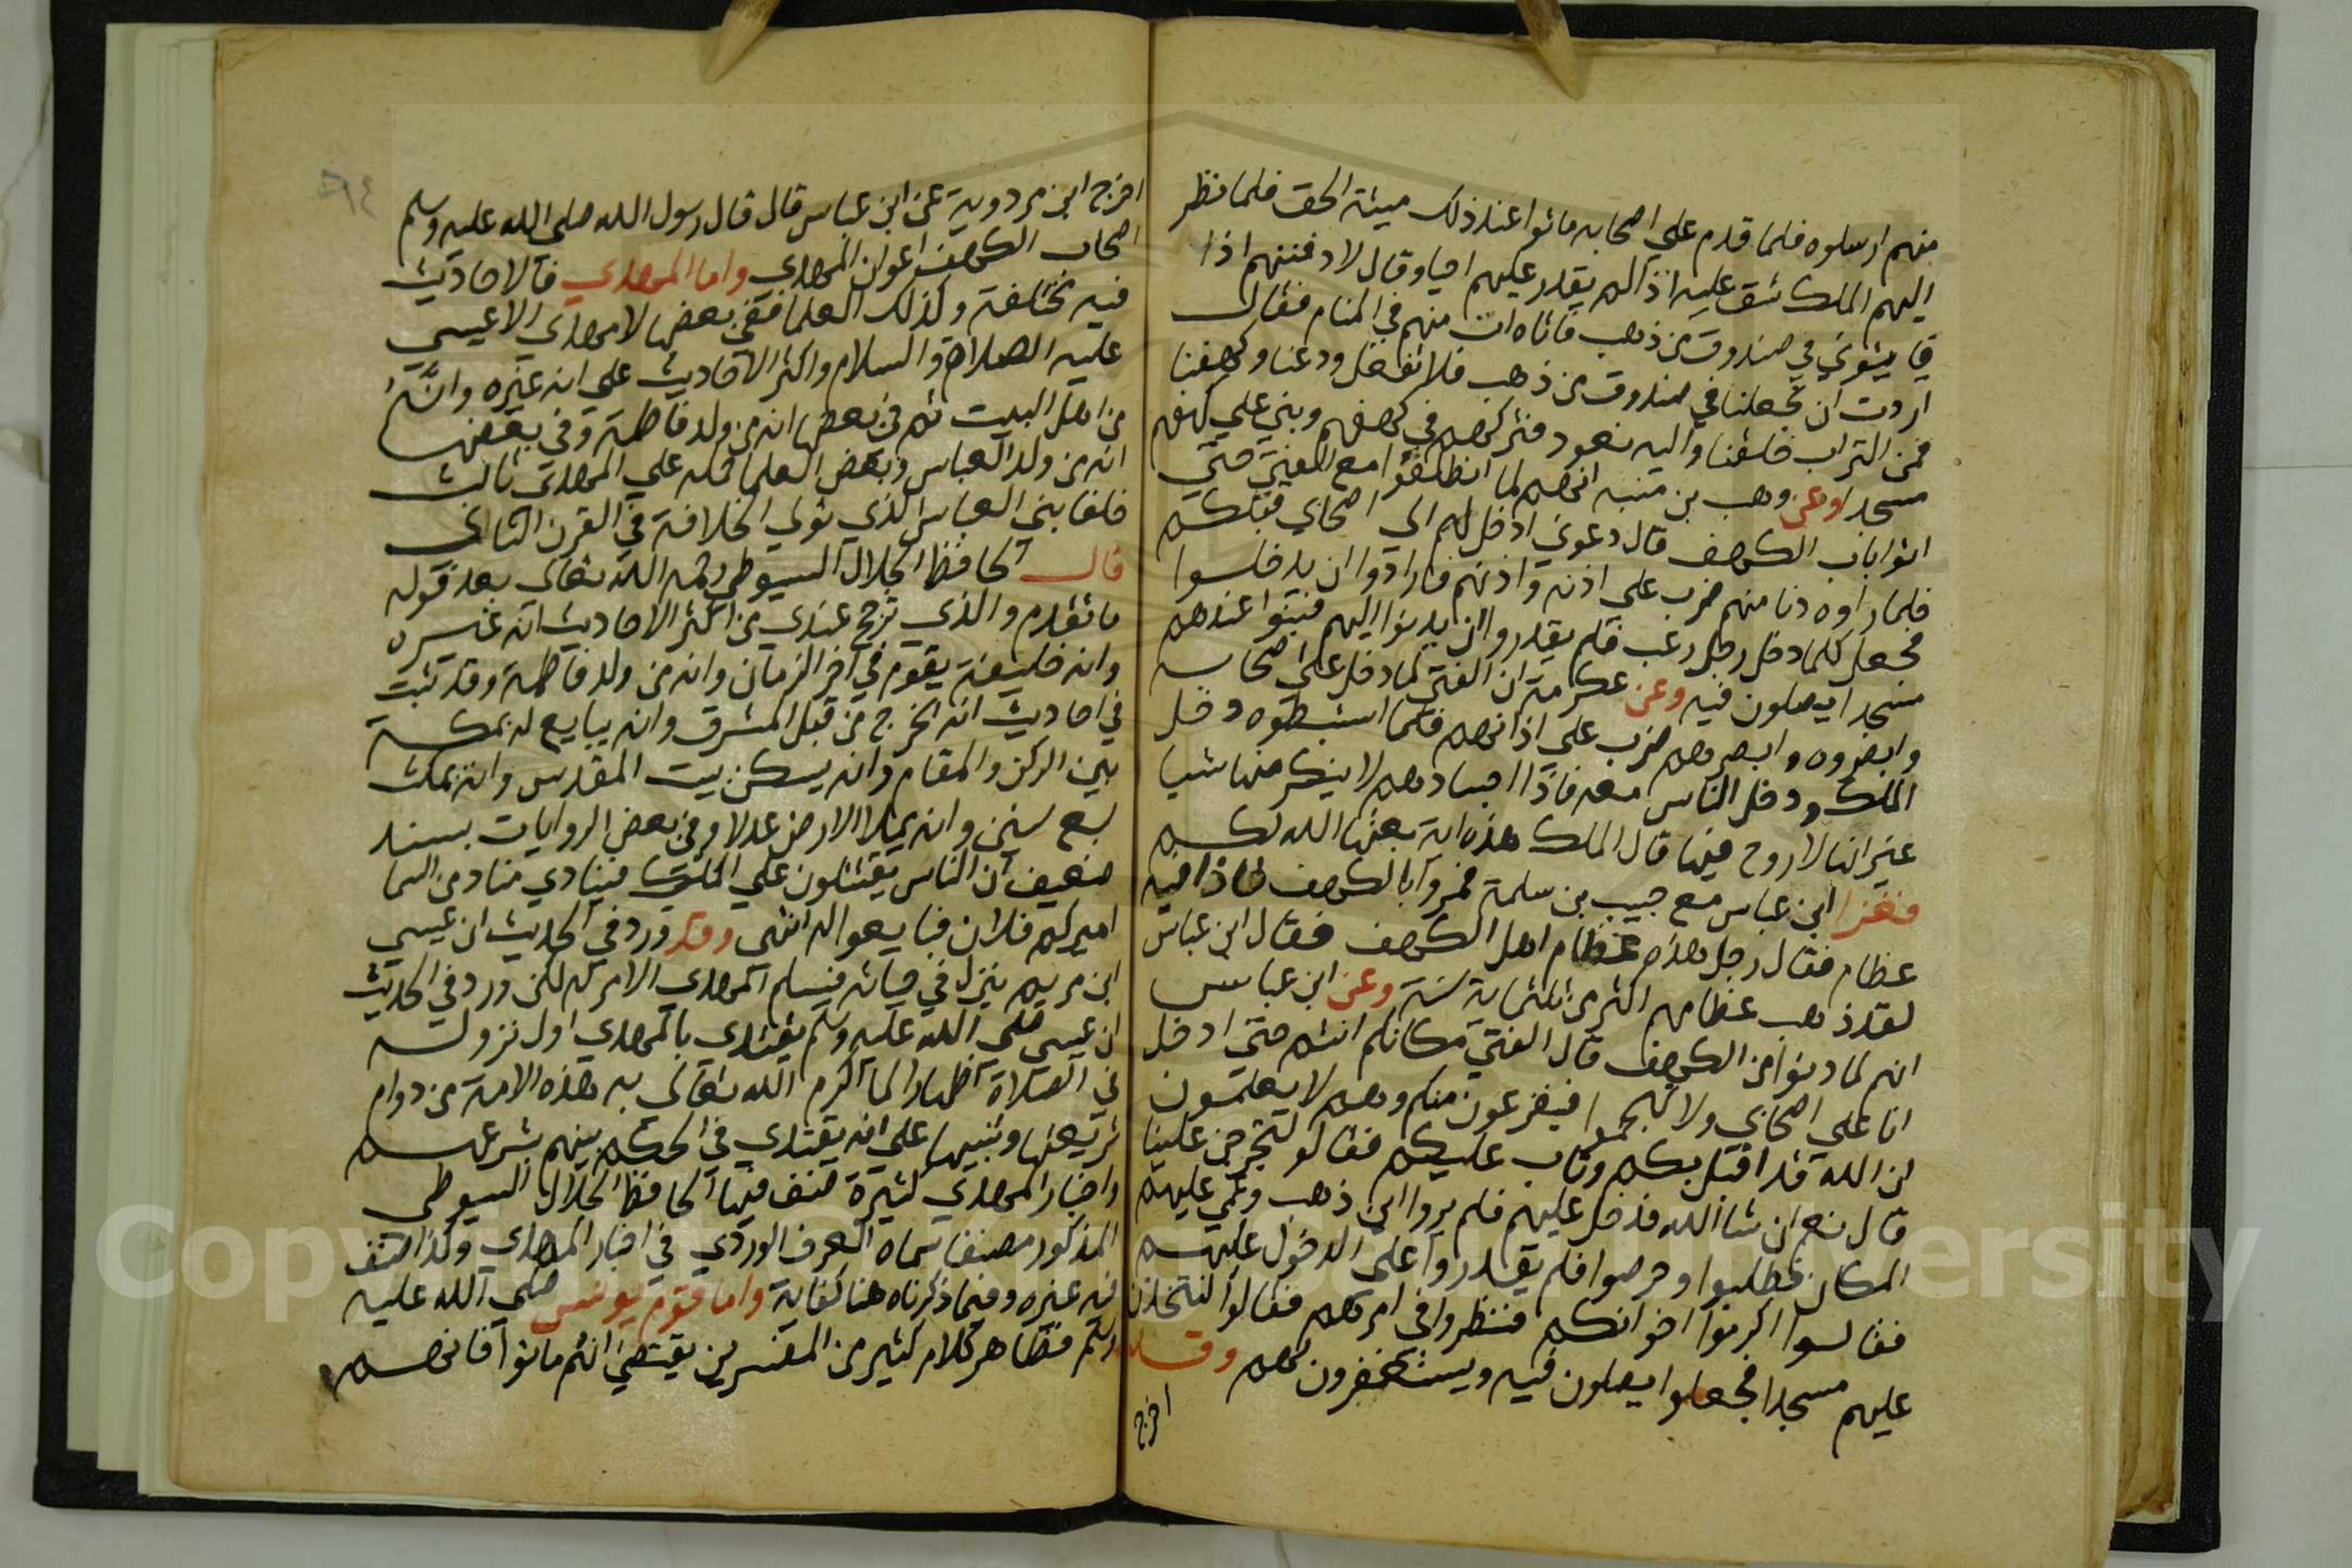 منهم ارسلوه فلما قدم علي اصحابه ماتوا عند ذلك ميتة الحق فلما نظر
اليهم الملك شق عليه اذ لم يقدر عليهم احيا وقال لادفننهم اذا
في صندوق من ذهب فاتاه ات منهم في المنام فقال
اردت ان تجعلنا في صندوق من ذهب فلا تفعل ودعنا وكهفنا
فمن التراب خلقنا واليه نعود فتركهم في كهفهم وبني علي كهفهم
مسجدا وعن وهب بن منبه انهم لما انطلقوا مع الفتي حتي
اتوا باب الكهف قال دعوني ادخل الي اصحابي قبلكم
فلما راوه دنا منهم ضرب علي اذنه واذنهم فارادوا ان يدخلوا
فجعل كلما دخل رجل رعب فلم يقدروا ان يدنوا اليهم فبنوا عندهم
مسجدا يصلون فيه وعن عكرمة ان الفتي لما دخل علي اصحابه
وابصروه وابصرهم ضرب علي اذانهم فلما استبطوه دخل
الملك ودخل الناس معه فاذا اجسادهم لا ينكر منها شيا
غير انها لا روح فيها قال الملك هذه اية بعثها الله لكم
فغزا ابن عباس مع حبيب بن سلمة فمروا بالكهف فاذا فيه
عظام فقال رجل هذه عظام اهل الكهف فقال ابن عباس
لقد ذهب عظامهم اكثر من ثلثماية سنة وعن ابن عباس
انهم لما دنوا من الكهف قال الفتي مكانكم انتم حتي ادخل
انا علي اصحابي ولا تهجموا فيفزعون منكم وهم لا يعلمون
ان الله قد اقبل بكم وتاب عليكم فقالو لتخرجن علينا
قال نعم ان شا الله فدخل عليهم فلم يروا اين ذهب وعمي عليهم
المكان فطلبوا وحرصوا فلم يقدروا علي الدخول عليهم
فقالوا اكرموا اخوانكم فنظروا في امرهم فقالوا لنتخذن
عليهم مسجدا فجعلوا يصلون فيه ويستغفرون لهم وقد
اخرج
اخرج ابن مردويه عن ابن عباس قال قال رسول الله صلي الله عليه وسلم
اصحاب الكهف اعوان المهدي واما المهدي فالاحاديث
فيه مختلفة وكذلك العلما ففي بعضها لا مهدي الا عيسي
عليه الصلاة والسلام واكثر الاحاديث علي انه غيره وانه
من اهل البيت ثم في بعضها انه من ولد فاطمة وفي بعضها
انه من ولد العباس وبعض العلما حمله علي المهدي ثالث
خلفا بني العباس الذي تولي الخلافة في القرن الثاني
قال الحافظ الجلال السيوطي رحمه الله تعالي بعد قوله
ما تقدم والذي ترجح عندي من اكثر الاحاديث انه غيره
وانه خليفة يقوم في اخر الزمان وانه من ولد فاطمة وقد ثبت
في احاديث انه يخرج من قبل المشرق وانه يبايع له بمكة
بين الركن والمقام وانه يسكن بيت المقدس وانه يمكث
سبع سنين وانه يملا الارض عدلا وفي بعض الروايات بسند
ضعيف ان الناس يقتتلون علي الملك فينادي مناد من السما
اميركم فلان فبايعوا له انتهي وقد ورد في الحديث ان عيسي
ابن مريم ينزل في حياته فيسلم المهدي الامر له لكن ورد في الحديث
ان عيسي صلي الله عليه وسلم يقتدي بالمهدي اول نزوله
في الصلاة اظهارا لما اكرم الله تعالي به هذه الامة من دوام
شريعتها وتنبيها علي انه يقتدي في الحكم بينهم بشرعهم
واخبار المهدي كثيرة صنف فيها الحافظ الجلال السيوطي
المذكور مصنفا سماه العرف الوردي في اخبار المهدي وكذا صنف
فيه غيره وفيما ذكرناه هنا كفاية واما قوم يونس صلي الله عليه
وسلم فظاهر كلام كثير من المفسرين يقتضي انهم ماتوا فانهم